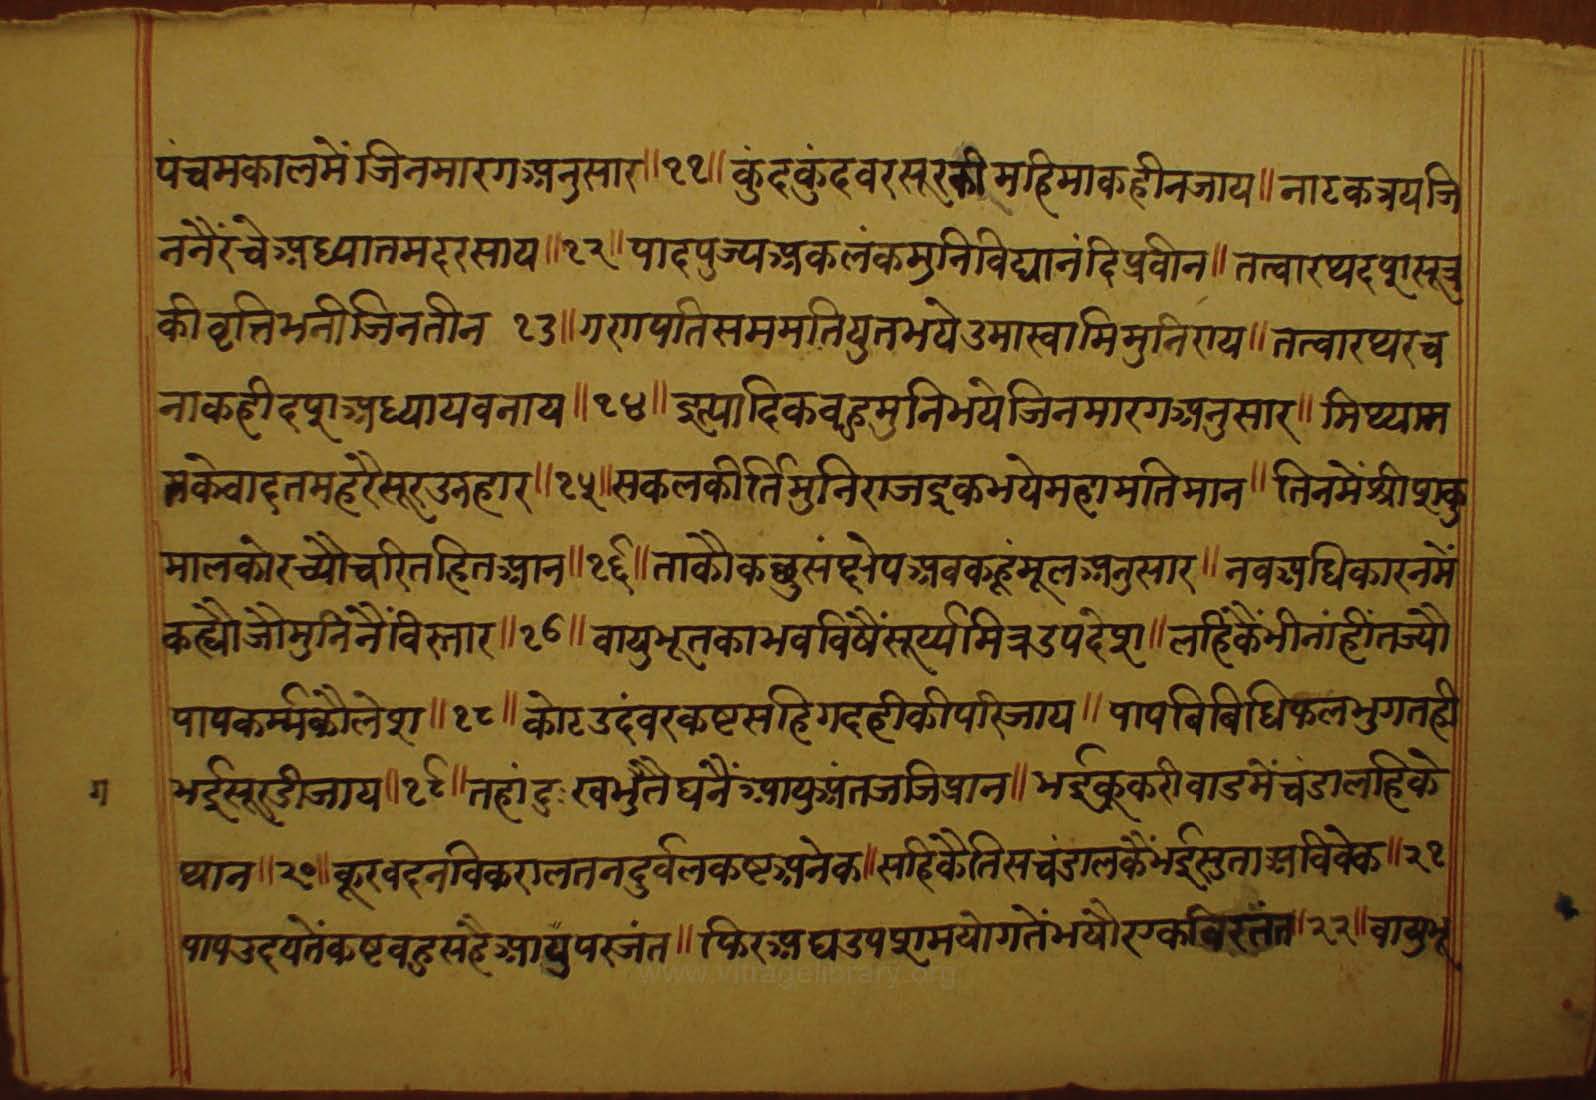 पंचमकालमेंजिनमारगअनुसार॥११॥कुंदकुंदवरसूरकीमहिमाकहीनजाय॥नाटकत्रयजि
ननैंरचेअध्यातमदरसाय॥१२॥पादपुज्यअकलंकमुनिविद्यानंदिप्रवीन॥तत्वारथदशसूत्र
कीवृत्तिभनीजिनतीन १३॥गणपतिसममतियुतभयेउमास्वामिमुनिराय॥तत्वारथरच
नाकहीदशअध्यायवनाय॥१४॥इत्यादिकवहुमुनिभयेजिनमारगअनुसार॥मिथ्याम
तकेवादतमहरैसूरउनहार॥१५॥सकलकीर्तिमुनिराजइकभयेमहामतिमान॥तिनमेंश्रीशकु
मालकोरच्यौचरितहितआन॥१६॥ताकौकछुसंक्षेपअवकहूंमूलअनुसार॥नवअधिकारनमें
कह्यौजौमुनिनैंविस्तार॥१७॥वायुभूतकाभवविषैंसूर्य्यमित्रउपदेश॥लहिकैंभीनांहींतज्यौ
पापकर्म्मकौलेश॥१८॥कोटउदंवरकष्टसहिगदहीकीपरिजाय॥पापबिबिधिफलभुगतही
भईसूरडीजाय॥१९॥तहांदुःखभुंतैघनैंआयुअंतजजिप्रान॥भईकुकरीवाडमेंचंडालहिके
ग
थान॥२०॥कूरवदनविकरालतनदुर्वलकष्टअनेक॥सहिकैतिसचंडालकैंभईसुताअविवेक॥२१
पापउदयतेंकष्टवहुसहैआयुपरजंत॥फिरअघउपशमयोगतेंभयौ ॥२२॥वायुभू
www.vittagelibrary.org